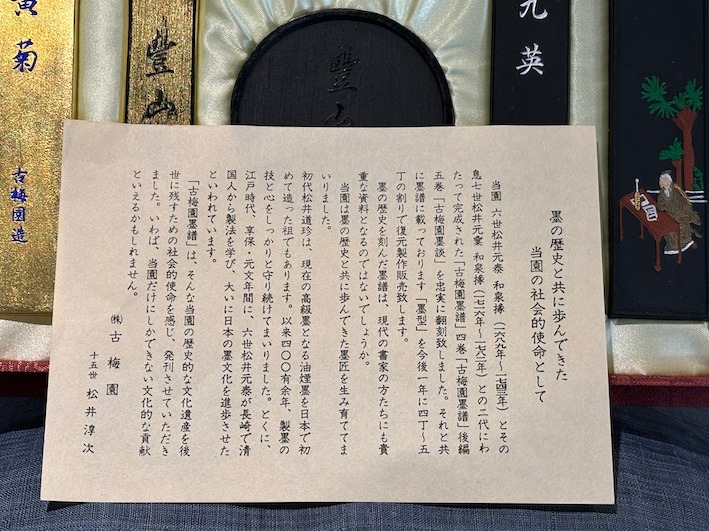 墨の歴史と共に歩んできた
当園の社会的使命として
当園 六世松井元泰 和泉掾(一六八九年〜一七四三年)とその
息七世松井元彙 和泉掾(一七一六年〜一七八二年)との二代にわ
たって完成された「古梅園墨譜」四巻「古梅園墨譜」後編
五巻「古梅園墨談」を忠実に翻刻致しました。それと共
に墨譜に載っております「墨型」を今後一年に四丁〜五
丁の割りで復元製作販売致します。
墨の歴史を刻んだ墨譜は、現代の書家の方たちにも貴
重な資料となるのではないでしょうか。
当園は墨の歴史と共に歩んできた墨匠を生み育ててま
いりました。
初代松井道珍は、現在の高級墨となる油煙墨を日本で初
めて造った祖でもあります。以来四〇〇有余年、製墨の
技と心をしっかりと守り続けてまいりました。とくに、
江戸時代、享保・元文年間に、六世松井元泰が長崎で清
国人から製法を学び、大いに日本の墨文化を進歩させた
といわれています。
「古梅園墨譜」は、そんな当園の歴史的な文化遺産を後
世に残すための社会的使命を感じ、発刊させていただき
ました。いわば、当園だけにしかできない文化的な貢献
といえるかもしれません。
㈱古梅園
十五世 松井淳次
元英
豐山
豐山
黄菊
古梅園造